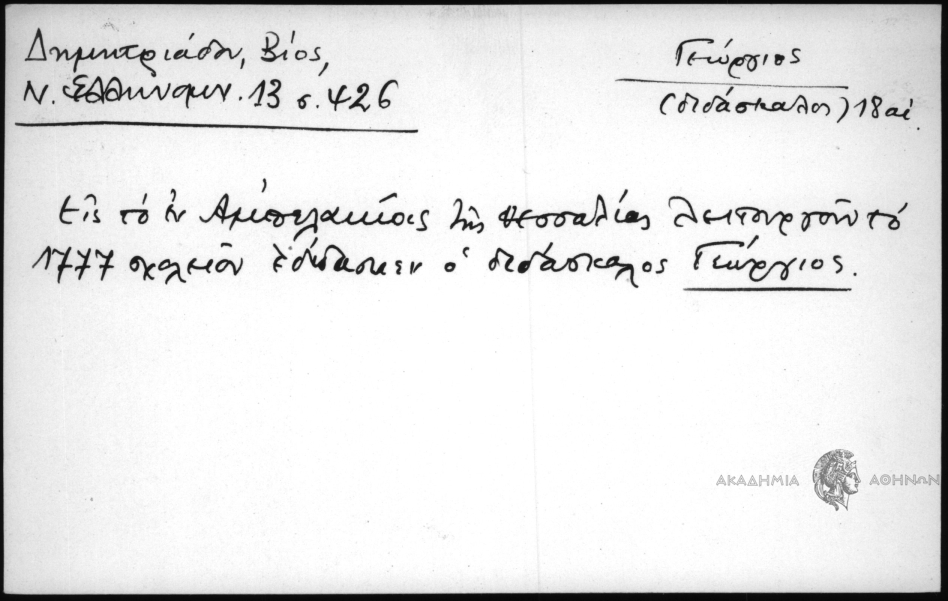 Δημητριάδη, Βίος,
Γεώργιος
Ν. Ἑλληνομν. 13 σ. 426
(διδάσκαλος) 18 αἰ.
Εἰς τό ἐν Ἀμπελακίοις τῆς Θεσσαλίας λειτουργοῦν τό
1777 σχολεῖον ἐδίδασκεν ὁ διδάσκαλος Γεώργιος.
ΑΚΑΔΗΜΙΑ ΑΘΗΝΩΝ